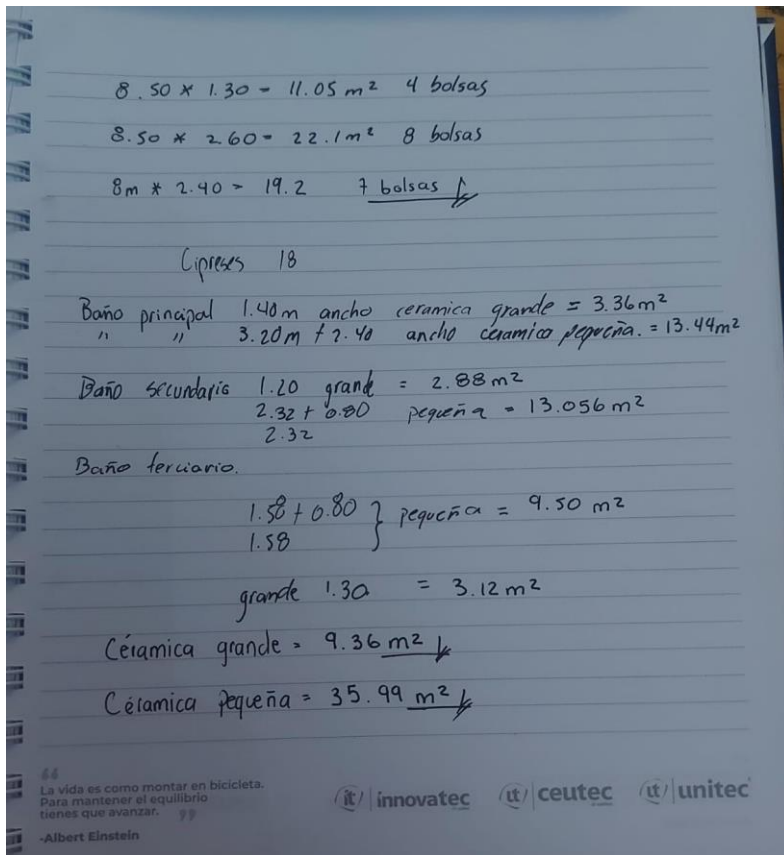 8.50 * 1.30 = 11.05 m² 4 bolsas
8.50 * 2.60 = 22.1m² 8 bolsas
8m * 2.40 = 19.2 7 bolsas
Cipreses 18
Baño principal 1.40m ancho ceramica grande = 3.36m²
" " 3.20m + 2.40 ancho ceramica pequeña. = 13.44m²
Baño secundario 1.20 grande = 2.88m²
2.32 + 0.80 pequeña = 13.056m²
2.32
Baño terciario.
1.58 + 0.80 } pequeña = 9.50 m²
1.58
grande 1.30 = 3.12m²
Cerámica grande = 9.36 m²
Cerámica pequeña = 35.99 m²
“
La vida es como montar en bicicleta.
Para mantener el equilibrio
tienes que avanzar. ”
-Albert Einstein
it/ innovatec ut/ ceutec ut/ unitec